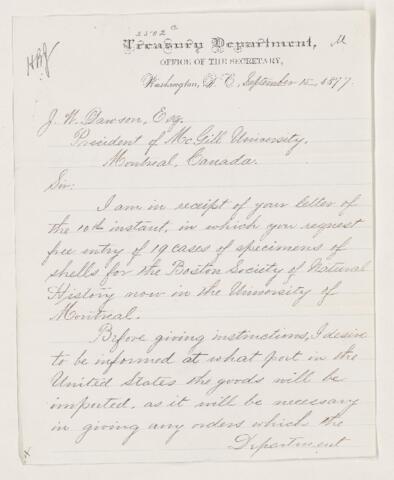 2502 c
Treasury Department, M
OFFICE OF THE SECRETARY,
Washington, D. C., September 15, 1877.
J. W. Dawson, Esq.
President of McGill University,
Montreal, Canada.
Sir:
I am in receipt of your letter of
the 10th instant, in which you request
free entry of 19 cases of specimens of
shells for the Boston Society of Natural
History now in the University of
Montreal.
Before giving instructions, I desire
to be informed at what port in the
United States the goods will be
imported, as it will be necessary
in giving any orders which the
Department